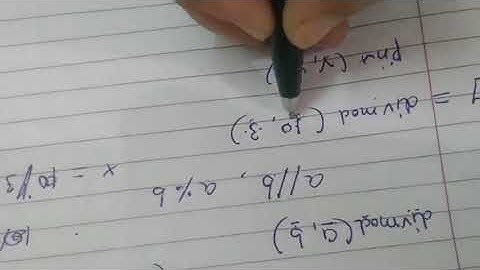 divmod(a, b)
a//b , a%b x =
= divmod (10, 3)
print (x,